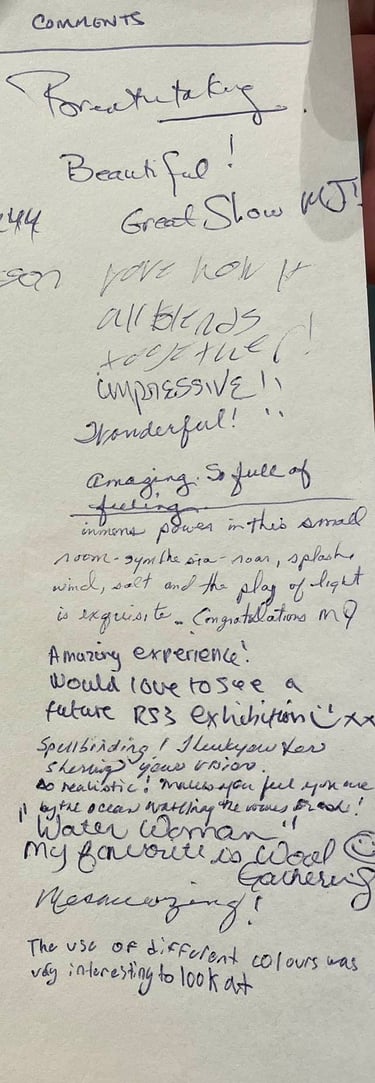 COMMENTS
Breathtaking.
Beautiful!
44 Great Show MJ!
son love how it
all blends
together!
impressive!!
Wonderful! !!
Amazing. So full of
feeling
immens power in this small
room - synthesia - roar, splash,
wind, salt and the play of light
is exquisite. Congratulations MJ
Amazing experience!
Would love to see a
future RS3 exhibition xx
Spellbinding! Thankyou for
sharing your vision.
so realistic! makes you feel you are
by the ocean watching the waves break!
"Water Woman"
My favourite is Wool
Gathering
Mesmerizing!
The use of different colours was
very interesting to look at